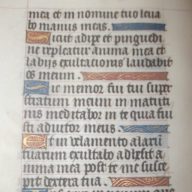 mea et in nomine tuo leua
bo manus meas.
Sicut adipe et pinguedi
ne repleatur anima mea et
labiis exultationis laudabit
os meum.
Sic memor fui tui super
stratum meum in matuti
nis meditabor in te quia fui
sti adiutor meus.
Et in velamento alarum
tuarum exultabo adhesit a
nima mea post te me susce
pit dextera tua